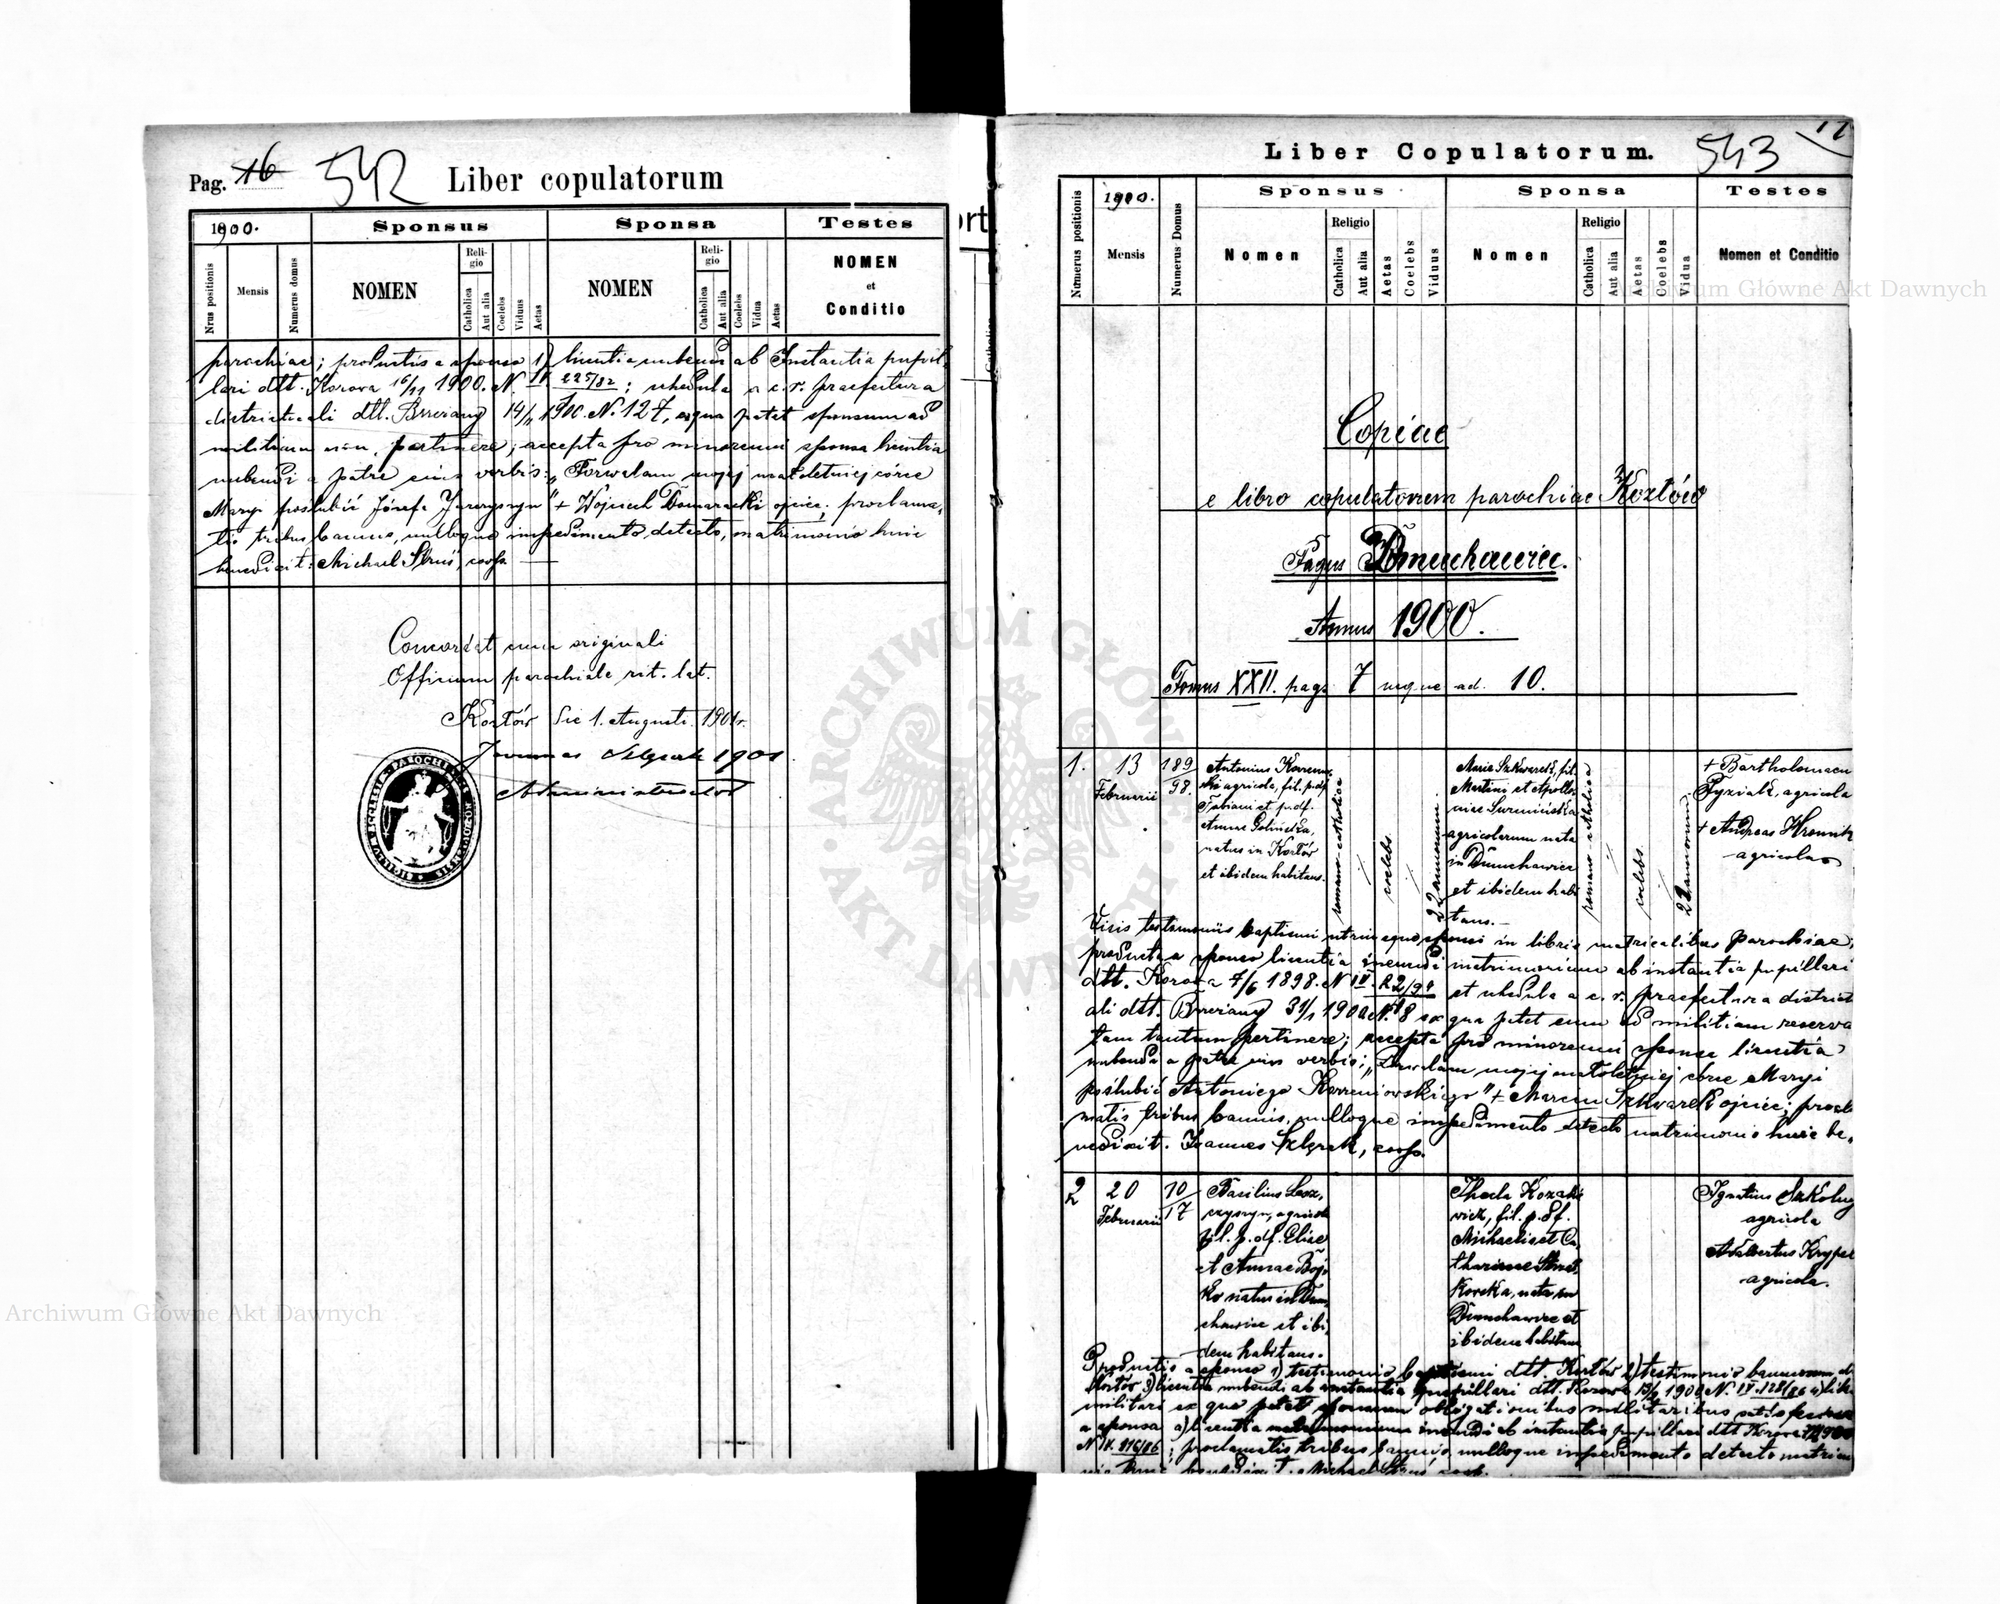 Pag. 16
542
Liber copulatorum
1900.
Sponsus
Sponsa
Testes
Nrus positionis
Mensis
Numerus domus
NOMEN
Religio
Catholica
Aut alia
Coelebs
Viduus
Aetas
NOMEN
Religio
Catholica
Aut alia
Coelebs
Vidua
Aetas
NOMEN
et
Conditio
parochiae; productis a sponso 1) licentia nubendi ab Instantia pupil-
lari dtt. Kozowa 16/11 1900. N. IV 225/82; schedula a c. r. praefectura
districtuali dtt. Brzeżany 14/11 1900. N. 127, ex qua patet sponsum ad
militiam non pertinere; accepta pro minorenni sponsa licentia
nubendi a patre eius verbis: „Pozwalam mojej małoletniej córce
Maryi poślubić Józefa" + Wojciech ojciec; proclama-
tis tribus bannis, nulloque impedimento detecto, matrimonio huic
benedixit: Michael coop.
Concordat cum originali
Officium parochiale rit. lat.
Kozłów die 1. Augusti 1901.
Joannes 1901
Administrator
Liber Copulatorum.
543
17
1900.
Sponsus
Sponsa
Testes
Numerus positionis
Mensis
Numerus Domus
Nomen
Religio
Catholica
Aut alia
Aetas
Coelebs
Viduus
Nomen
Religio
Catholica
Aut alia
Aetas
Coelebs
Vidua
Nomen et Conditio
Copiae
e libro copulatorum parochiae Kozłów
Pagus Dmuchawiec.
Annus 1900.
Tomus XXII. pag. 7 usque ad. 10.
1.
13
Februarii
189
98.
Antonius Korzeniow-
ski agricola, fil. p. df.
Fabiani et p. df.
Annae Golińska,
natus in Kozłów
et ibidem habitans.
romano-catholica
coelebs
22 annorum
Maria Szkwarek, fil.
Martini et Apollo-
niae
agricolarum nata
in Dmuchawiec
et ibidem habi
tans.
romano-catholica
coelebs.
22 annorum
+ Bartholomaeu
agricola
+ Andreas
agricola
Visis testimoniis baptismi utriusque sponsi in libris metricalibus Parochiae;
producta a sponso licentia ineundi matrimonium ab instantia pupillari
dtt. Kozowa 7/6 1898. N IV. et schedula a c. r. praefectura district
ali dtt. Brzeżany 31/1 1900 N. 18 ex qua patet eum ad militiam reserva
tam tantum pertinere; accepta pro minorenni sponsa licentia
nubendi a patre eius verbis: „Pozwalam mojej małoletniej córce Maryi
poślubić Antoniego Korzeniowskiego" + Marcin Szkwarek ojciec; procla
matis tribus bannis, nulloque impedimento detecto matrimonio huic be-
nedixit. Joannes coop.
2
20
Februarii
10
17
Basilius Lesz-
czyszyn, agricola
fil. p. df. Eliae
et Annae Boj-
ko natus in Dmu-
chawiec et ibi-
dem habitans.
Thecla Kozakie
wicz, fil. p. df.
Michaelis et Ca-
tharinae
nata in
Dmuchawiec et
ibidem habitans
Ignatius Szkolny
agricola
Adalbertus
agricola.
Productis a sponso 1) testimonio baptismi dtt. Kozłów 2) testimonio bannorum d
Kozłów 3) licentia nubendi ab instantia pupillari dtt. Kozowa 1900 N. IV. 128/86 4)
militari ex quo patet sponsum obligationibus militaribus
a sponsa a) licentia matrimonium ineundi ab instantia pupillari dtt Kozowa
N IV. 816/86; proclamatis tribus bannis, nulloque impedimento detecto matrim
nio huic benedixit. Michael coop.
Archiwum Główne Akt Dawnych
Archiwum Główne Akt Dawnych
ARCHIWUM GŁÓWNE AKT DAWNYCH